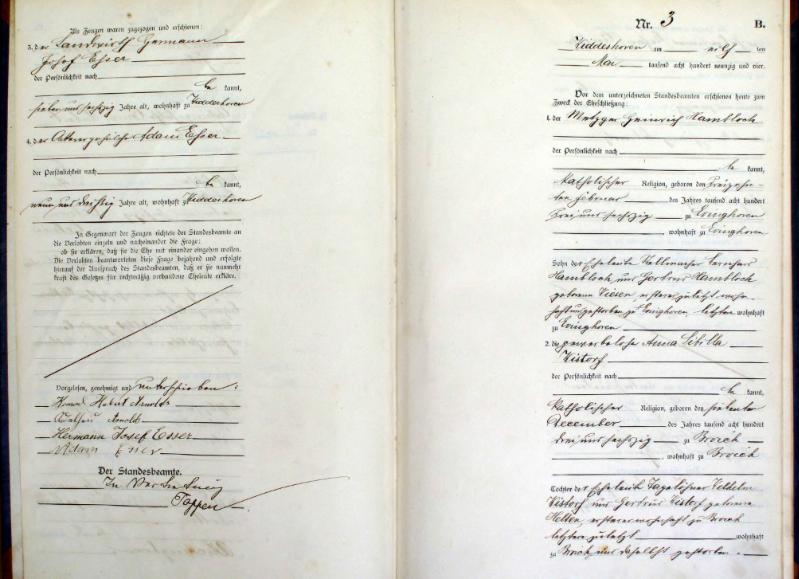 Als Zeugen waren zugezogen und erschienen:
3. der Landwirth Hermann
Josef Esser
der Persönlichkeit nach
be kannt,
sieben und sechzig Jahre alt, wohnhaft zu Widdeshoven
4. der Ackergehülfe Adam Esser
der Persönlichkeit nach
be kannt,
neun und dreißig Jahre alt, wohnhaft zu Widdeshoven
In Gegenwart der Zeugen richtete der Standesbeamte an
die Verlobten einzeln und nacheinander die Frage:
ob sie erklären, daß sie die Ehe mit einander eingehen wollen.
Die Verlobten beantworteten diese Frage bejahend und erfolgte
hierauf der Ausspruch des Standesbeamten, daß er sie nunmehr
kraft des Gesetzes für rechtmäßig verbundene Eheleute erkläre.
Vorgelesen, genehmigt und unterschrieben:
Hubert Arnolds
Arnolds
Hermann Josef Esser
Adam Esser
Der Standesbeamte.
In Vertretung
Nr. 3
B.
Widdeshoven am elf ten
Mai tausend acht hundert neunzig und vier.
Vor dem unterzeichneten Standesbeamten erschienen heute zum
Zweck der Eheschließung:
1. der Metzger Heinrich Hambloch
der Persönlichkeit nach
be kannt,
katholischer Religion, geboren den dreizehn-
ten Februar des Jahres tausend acht hundert
drei und sechzig zu Evinghoven
, wohnhaft zu Evinghoven
Sohn der Eheleute
Hambloch und Gertrud Hambloch
geborene ersterer zuletzt wohn-
haft und gestorben zu Evinghoven, letztere wohnhaft
zu Evinghoven
2. die gewerbelose Anna Sibilla
Kistorf
der Persönlichkeit nach
be kannt,
katholischer Religion, geboren den siebenten
December des Jahres tausend acht hundert
drei und sechzig zu Broich
, wohnhaft zu Broich
Tochter der Eheleute Tagelöhner Wilhelm
Kistorf und Gertrud Kistorf geborene
ersterer wohnhaft zu Broich
letztere zuletzt wohnhaft
zu Broich und daselbst gestorben.